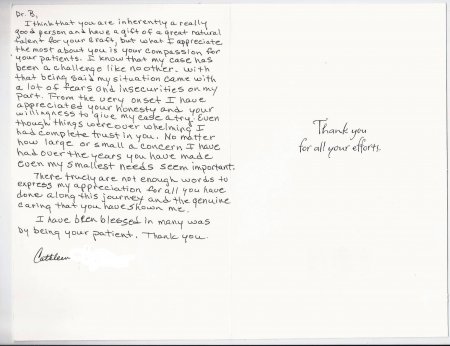 Dr. B,
I think that you are inherently a really
good person and have a gift of a great natural
talent for your craft, but what I appreciate
the most about you is your compassion for
your patients. I know that my case has
been a challenge like no other. With
that being said my situation came with
a lot of fears and insecurities on my
part. From the very onset I have
appreciated your honesty and your
willingness to give my case a try. Even
though things were over whelming I
had complete trust in you. No matter
how large or small a concern I have
had over the years you have made
even my smallest needs seem important.
There truely are not enough words to
express my appreciation for all you have
done along this journey and the genuine
caring that you have shown me.
I have been blessed in many was
by being your patient. Thank you.
Cathleen
Thank you
for all your efforts.